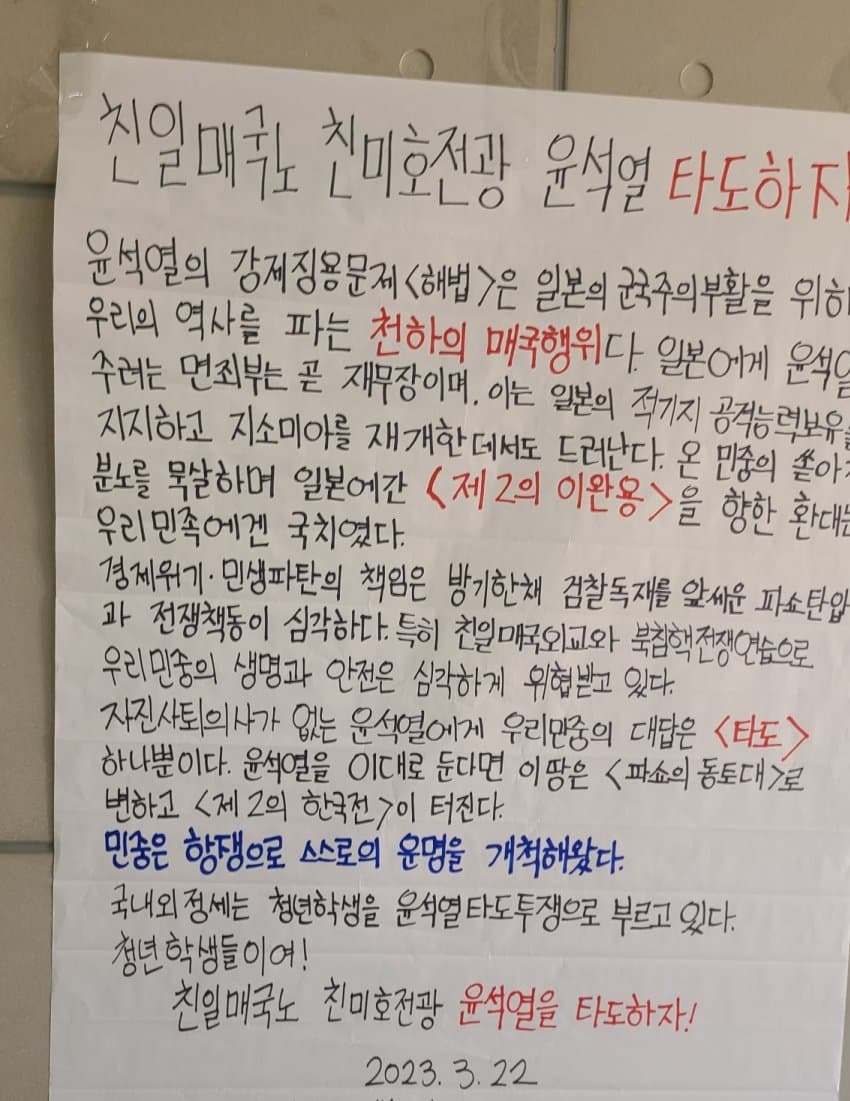 친일매국노 친미호전광 윤석열 타도하자
윤석열의 강제징용문제<해법>은 일본의 군국주의부활을 위하
우리의 역사를 파는 천하의 매국행위다. 일본에게 윤석열
주려는 면죄부는 곧 재무장이며, 이는 일본의 적기지 공격능력보유를
지지하고 지소미아를 재개한데서도 드러난다. 온 민중의 쏟아
분노를 묵살하며 일본에간 <제2의 이완용>을 향한 환대는
우리민족에겐 국치였다.
경제위기·민생파탄의 책임은 방기한채 검찰독재를 앞세운 파쇼탄압
과 전쟁책동이 심각하다. 특히 친일매국외교와 북침핵전쟁연습으로
우리민중의 생명과 안전은 심각하게 위협받고 있다.
자진사퇴의사가 없는 윤석열에게 우리민중의 대답은 <타도>
하나뿐이다. 윤석열을 이대로 둔다면 이땅은 <파쇼의 동토대>로
변하고 <제2의 한국전>이 터진다.
민중은 항쟁으로 스스로의 운명을 개척해왔다.
국내외정세는 청년학생을 윤석열타도투쟁으로 부르고 있다.
청년학생들이여!
친일매국노 친미호전광 윤석열을 타도하자!
2023. 3. 22